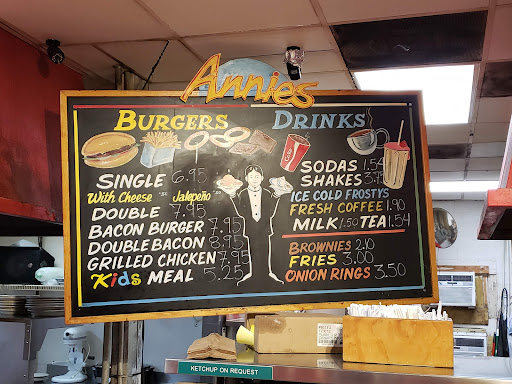 Annies
BURGERS
SINGLE 6.95
With Cheese .50 Jalepeño .50
DOUBLE 7.95
BACON BURGER 7.95
DOUBLE BACON 8.95
GRILLED CHICKEN 7.95
Kids MEAL 5.25
DRINKS
SODAS 1.54
SHAKES 3.75
ICE COLD FROSTYS
FRESH COFFEE 1.90
MILK 1.50 TEA 1.54
BROWNIES 2.10
FRIES 3.00
ONION RINGS 3.50
KETCHUP ON REQUEST